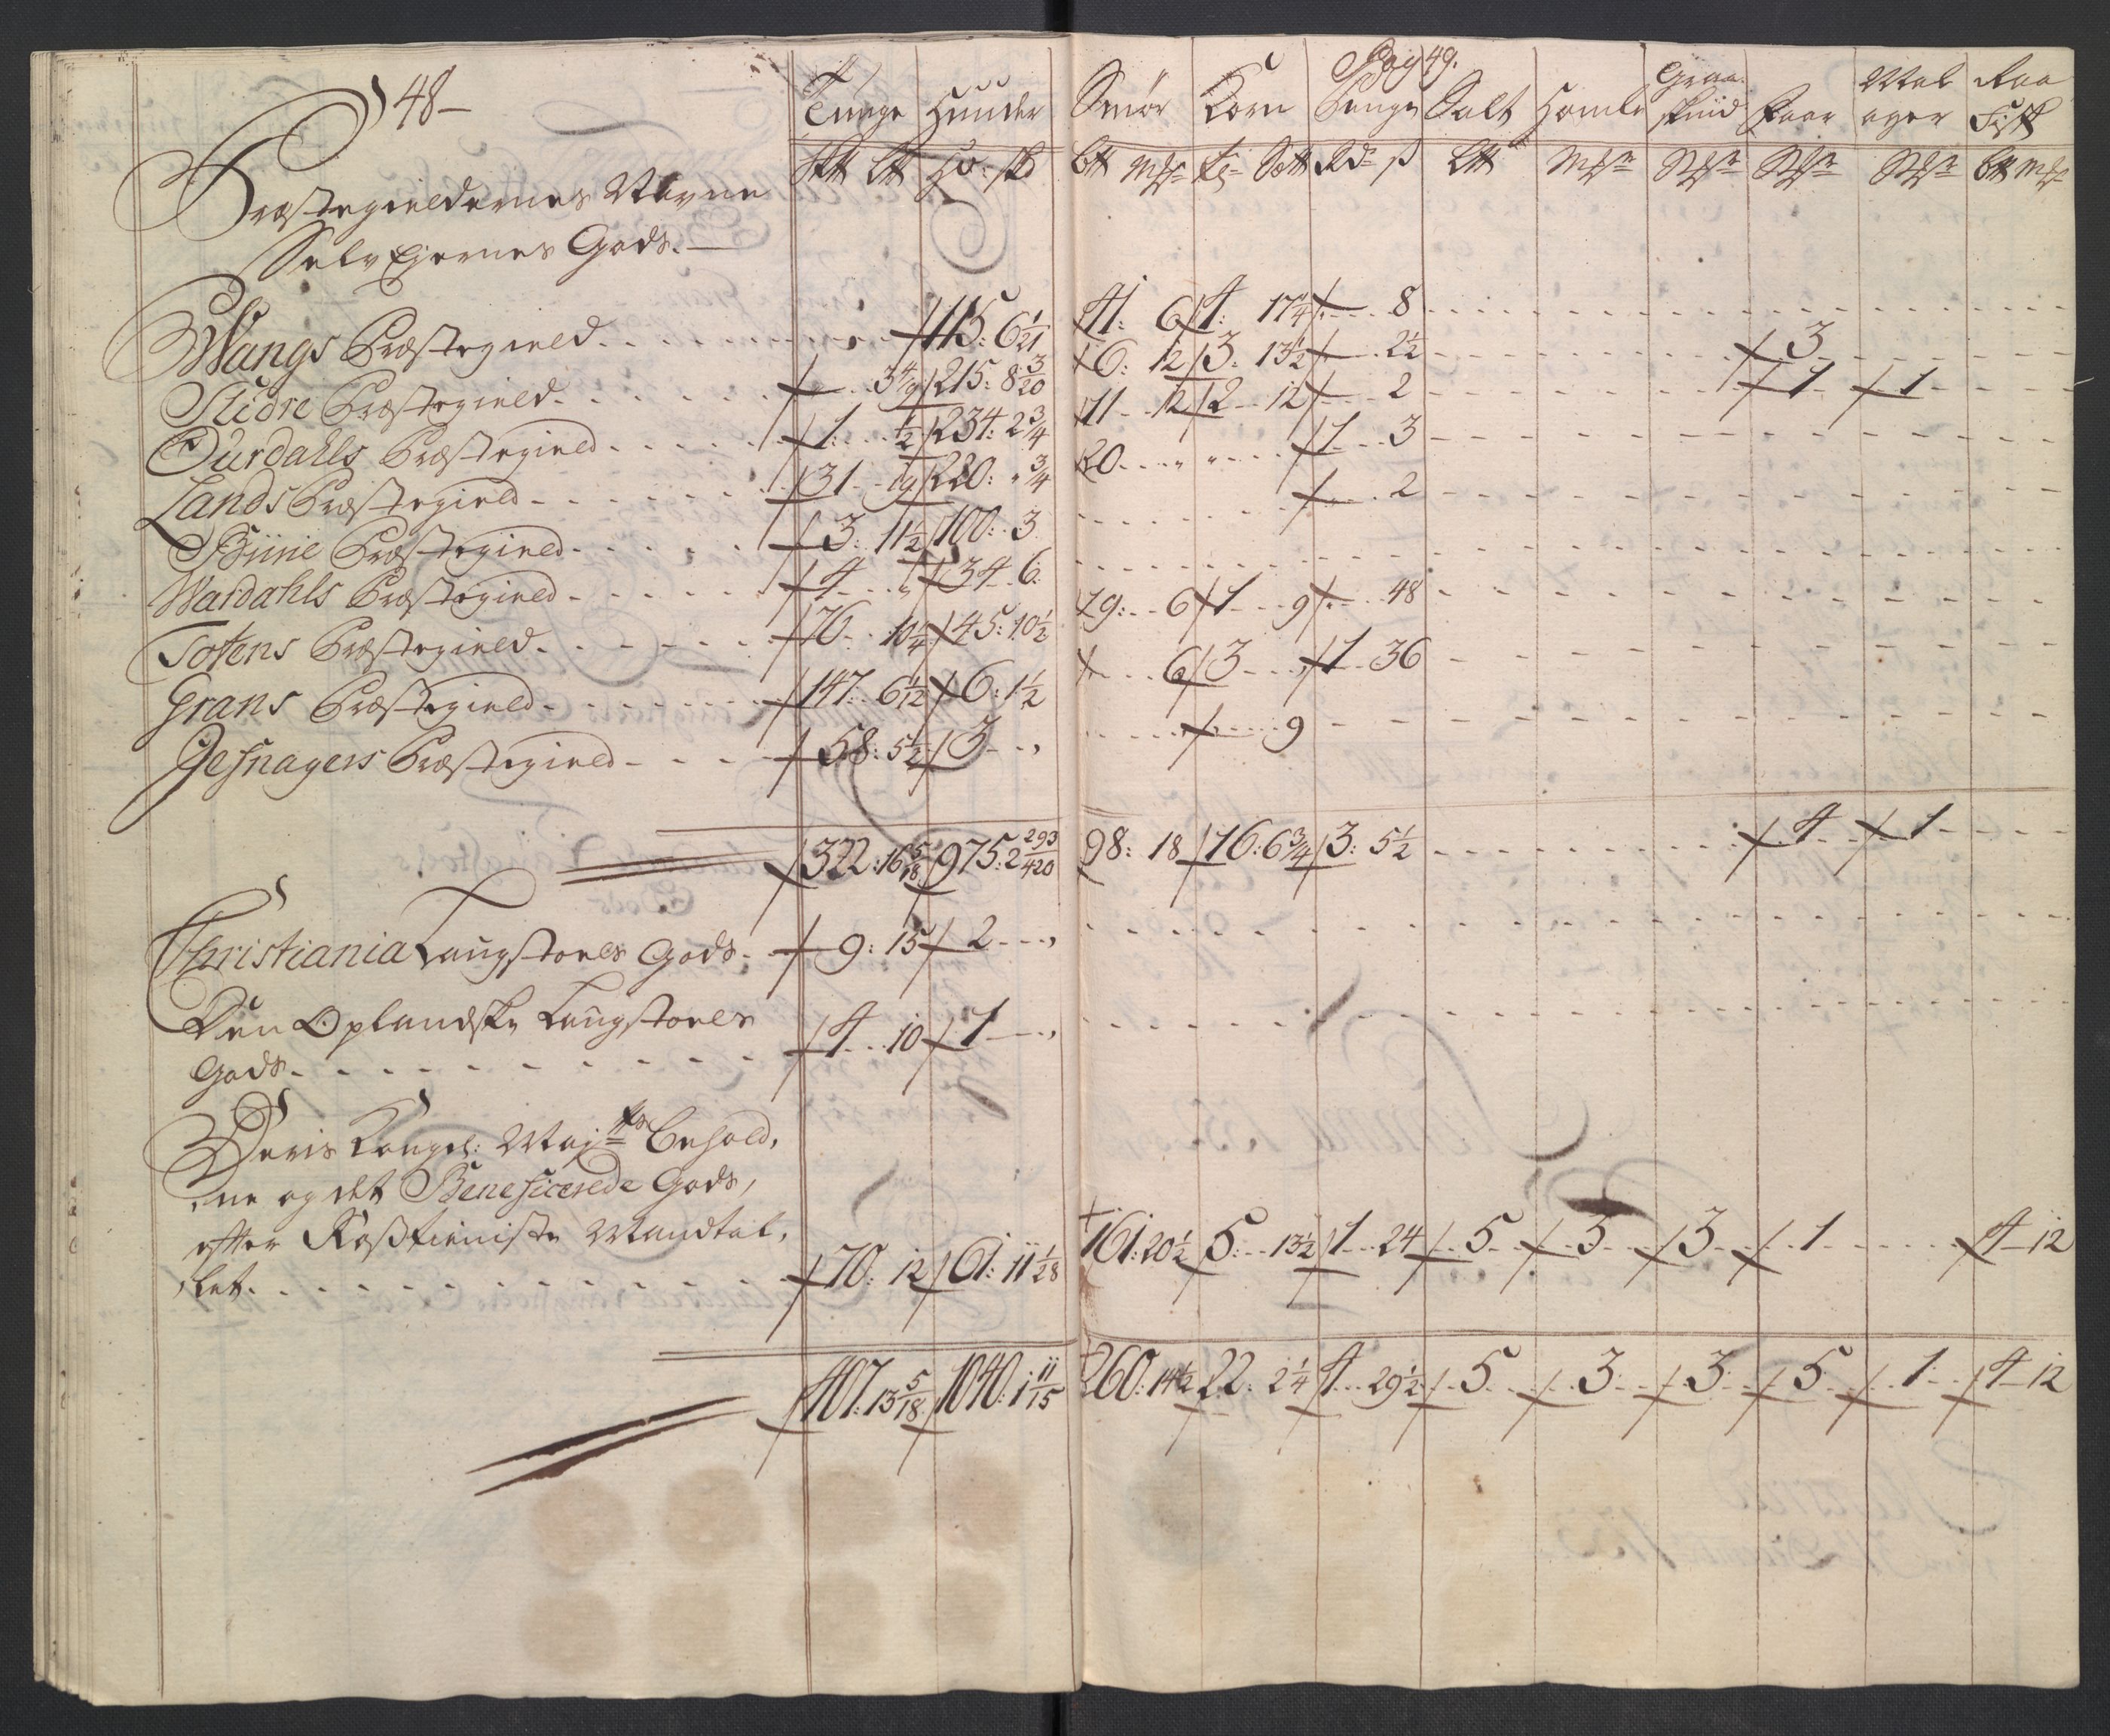 48 –
Pag 49.
Tunge Huuder Smør Korn Penge Salt Homle Graa skind Faar Mel ager Raa Fisk
Præstegieldernes Navne
Selv Ejernes Gods. –
Wangs Præstegield 115: 6 1/21 41: 6 4: 17 1/4 8
Slidre Præstegield 3 4/9 215: 8 3/20 6: 12 3: 13 1/2 2 1/2 3
Ourdahls Præstegield 1 1/2 234: 2 3/4 11 12 2 12 2 1 1
Lands Præstegield 31 220: " 3/4 20 " " 1 3
Biirie Præstegield 3: 11 1/2 100: 3 2
Wardahls Præstegield 4 " 34 6
Totens Præstegield 76 10 1/4 45: 10 1/2 19: 6 1 9 48
Grans Præstegield 147: 6 1/12 6: 1 1/2 6 3 1 36
Jefnagers Præstegield 58: 5 1/2 3 9
322: 16 5/18 975: 2 293/420 98: 18 16: 6 3/4 3: 5 1/2 4 1
Christiania Laugstoels Gods 9: 15 2
Den Oplandske Laugstoels
Gods 4 10 1
Deris Kongel: Majts Behold,
ne og det Beneficerede Gods,
efter Roßtieniste Mandtal,
let 70: 12 61: 11 1/28 161: 20 1/2 5: 13 1/2 1 24 5 3 3 1 4 12
407: 13 5/18 1040: 1 11/15 260: 14 1/2 22: 2 1/4 4 29 1/2 5 3 3 5 1 4 12